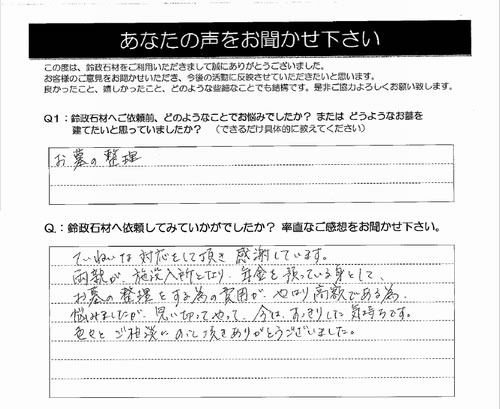 あなたの声をお聞かせ下さい
この度は、鈴政石材をご利用いただきまして誠にありがとうございました。
お客様のご意見をお聞かせいただき、今後の活動に反映させていただきたいと思います。
良かったこと、嬉しかったこと、どのような些細なことでも結構です。是非ご協力よろしくお願い致します。
Q1：鈴政石材へご依頼前、どのようなことでお悩みでしたか？ または どうようなお墓を
建てたいと思っていましたか？ （できるだけ具体的に教えてください）
お墓の整理
Q.：鈴政石材へ依頼してみていかがでしたか？ 率直なご感想をお聞かせ下さい。
ていねいな対応をして頂き 感謝しています。
両親が 施設入所となり、年金を預っている身として、
お墓の整理をする為の費用が、やはり高額である為、
悩みましたが、思い切ってやって、今は、すっきりした気持ちです。
色々と ご相談にのって頂きありがとうございました。